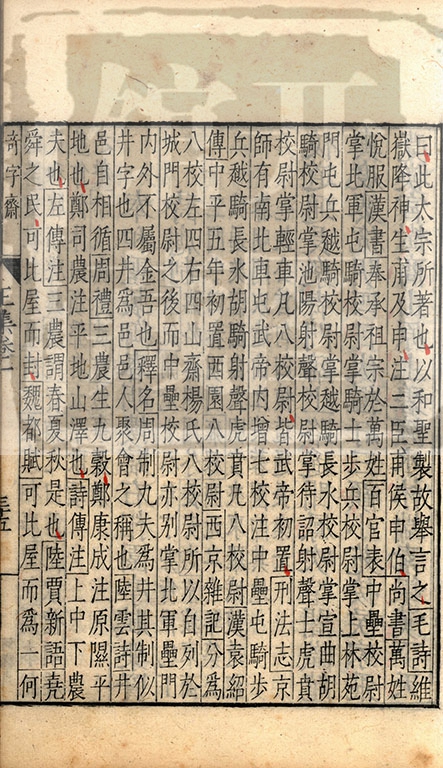 曰此太宗所著也以和聖製故舉言之毛詩維
嶽降神生甫及申注二臣甫侯申伯尚書萬姓
悅服漢書奉承祖宗於萬姓百官表中壘校尉
掌北軍屯騎校尉掌騎士步兵校尉掌上林苑
門屯兵越騎校尉掌越騎長水校尉掌宣曲胡
騎校尉掌池陽射聲校尉掌待詔射聲士虎賁
校尉掌輕車凡八校尉皆武帝初置刑法志京
師有南北軍屯武帝內增七校注中壘屯騎步
兵越騎長水胡騎射聲虎賁凡八校尉漢袁紹
傳中平五年初置西園八校尉西京雜記分為
八校左四右四山齋楊氏八校尉所以自列於
城門校尉之後而中壘校尉亦別掌北軍壘門
內外不屬金吾也釋名周制九夫為井其制似
井字也四井爲邑邑人聚會之稱也陸雲詩井
邑自相循周禮三農生九穀鄭康成注原隰平
地也鄭司農注平地山澤也詩傳注上中下農
夫也左傳注三農謂春夏秋是也陸賈新語堯
舜之民可比屋而封魏都賦可比屋而爲一何
奇字齋